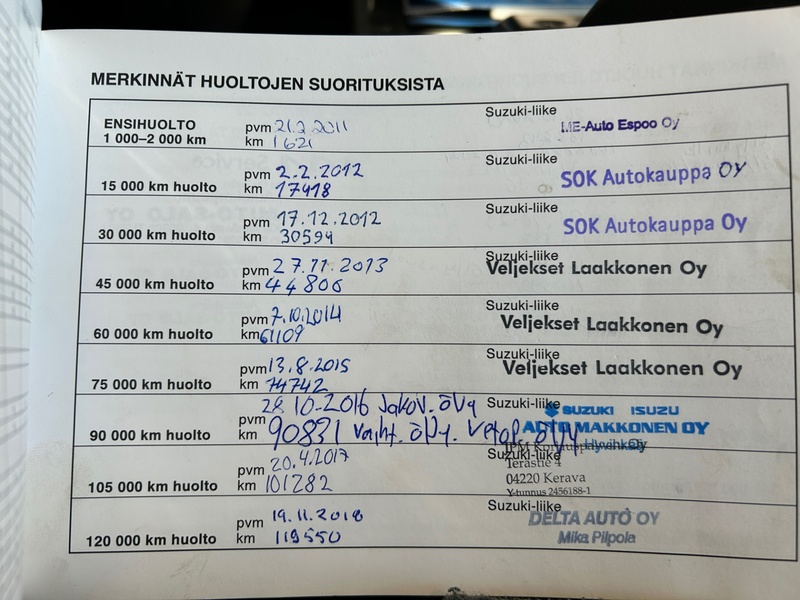 MERKINNÄT HUOLTOJEN SUORITUKSISTA
ENSIHUOLTO pvm 21.2.2011 Suzuki-liike
1 000–2 000 km km 1621 ME-Auto Espoo Oy
pvm 2.2.2012 Suzuki-liike
15 000 km huolto km 17418 SOK Autokauppa OY
pvm 17.12.2012 Suzuki-liike
30 000 km huolto km 30594 SOK Autokauppa Oy
pvm 27.11.2013 Suzuki-liike
45 000 km huolto km 44806 Veljekset Laakkonen Oy
pvm 7.10.2014 Suzuki-liike
60 000 km huolto km 61109 Veljekset Laakkonen Oy
pvm 13.8.2015 Suzuki-liike
75 000 km huolto km 74742 Veljekset Laakkonen Oy
pvm 28.10.2016 Jakov. öljy Suzuki-liike
SUZUKI ISUZU
90 000 km huolto km 90831 vaiht. öljy. vetop. öljy AUTO MAKKONEN OY
Hyvinkää
pvm 20.4.2017 Suzuki-liike
105 000 km huolto km 101282
Terästie 4
04220 Kerava
Y-tunnus 2456188-1
pvm 19.11.2018 Suzuki-liike
120 000 km huolto km 119550 DELTA AUTO OY
Mika Pilpola